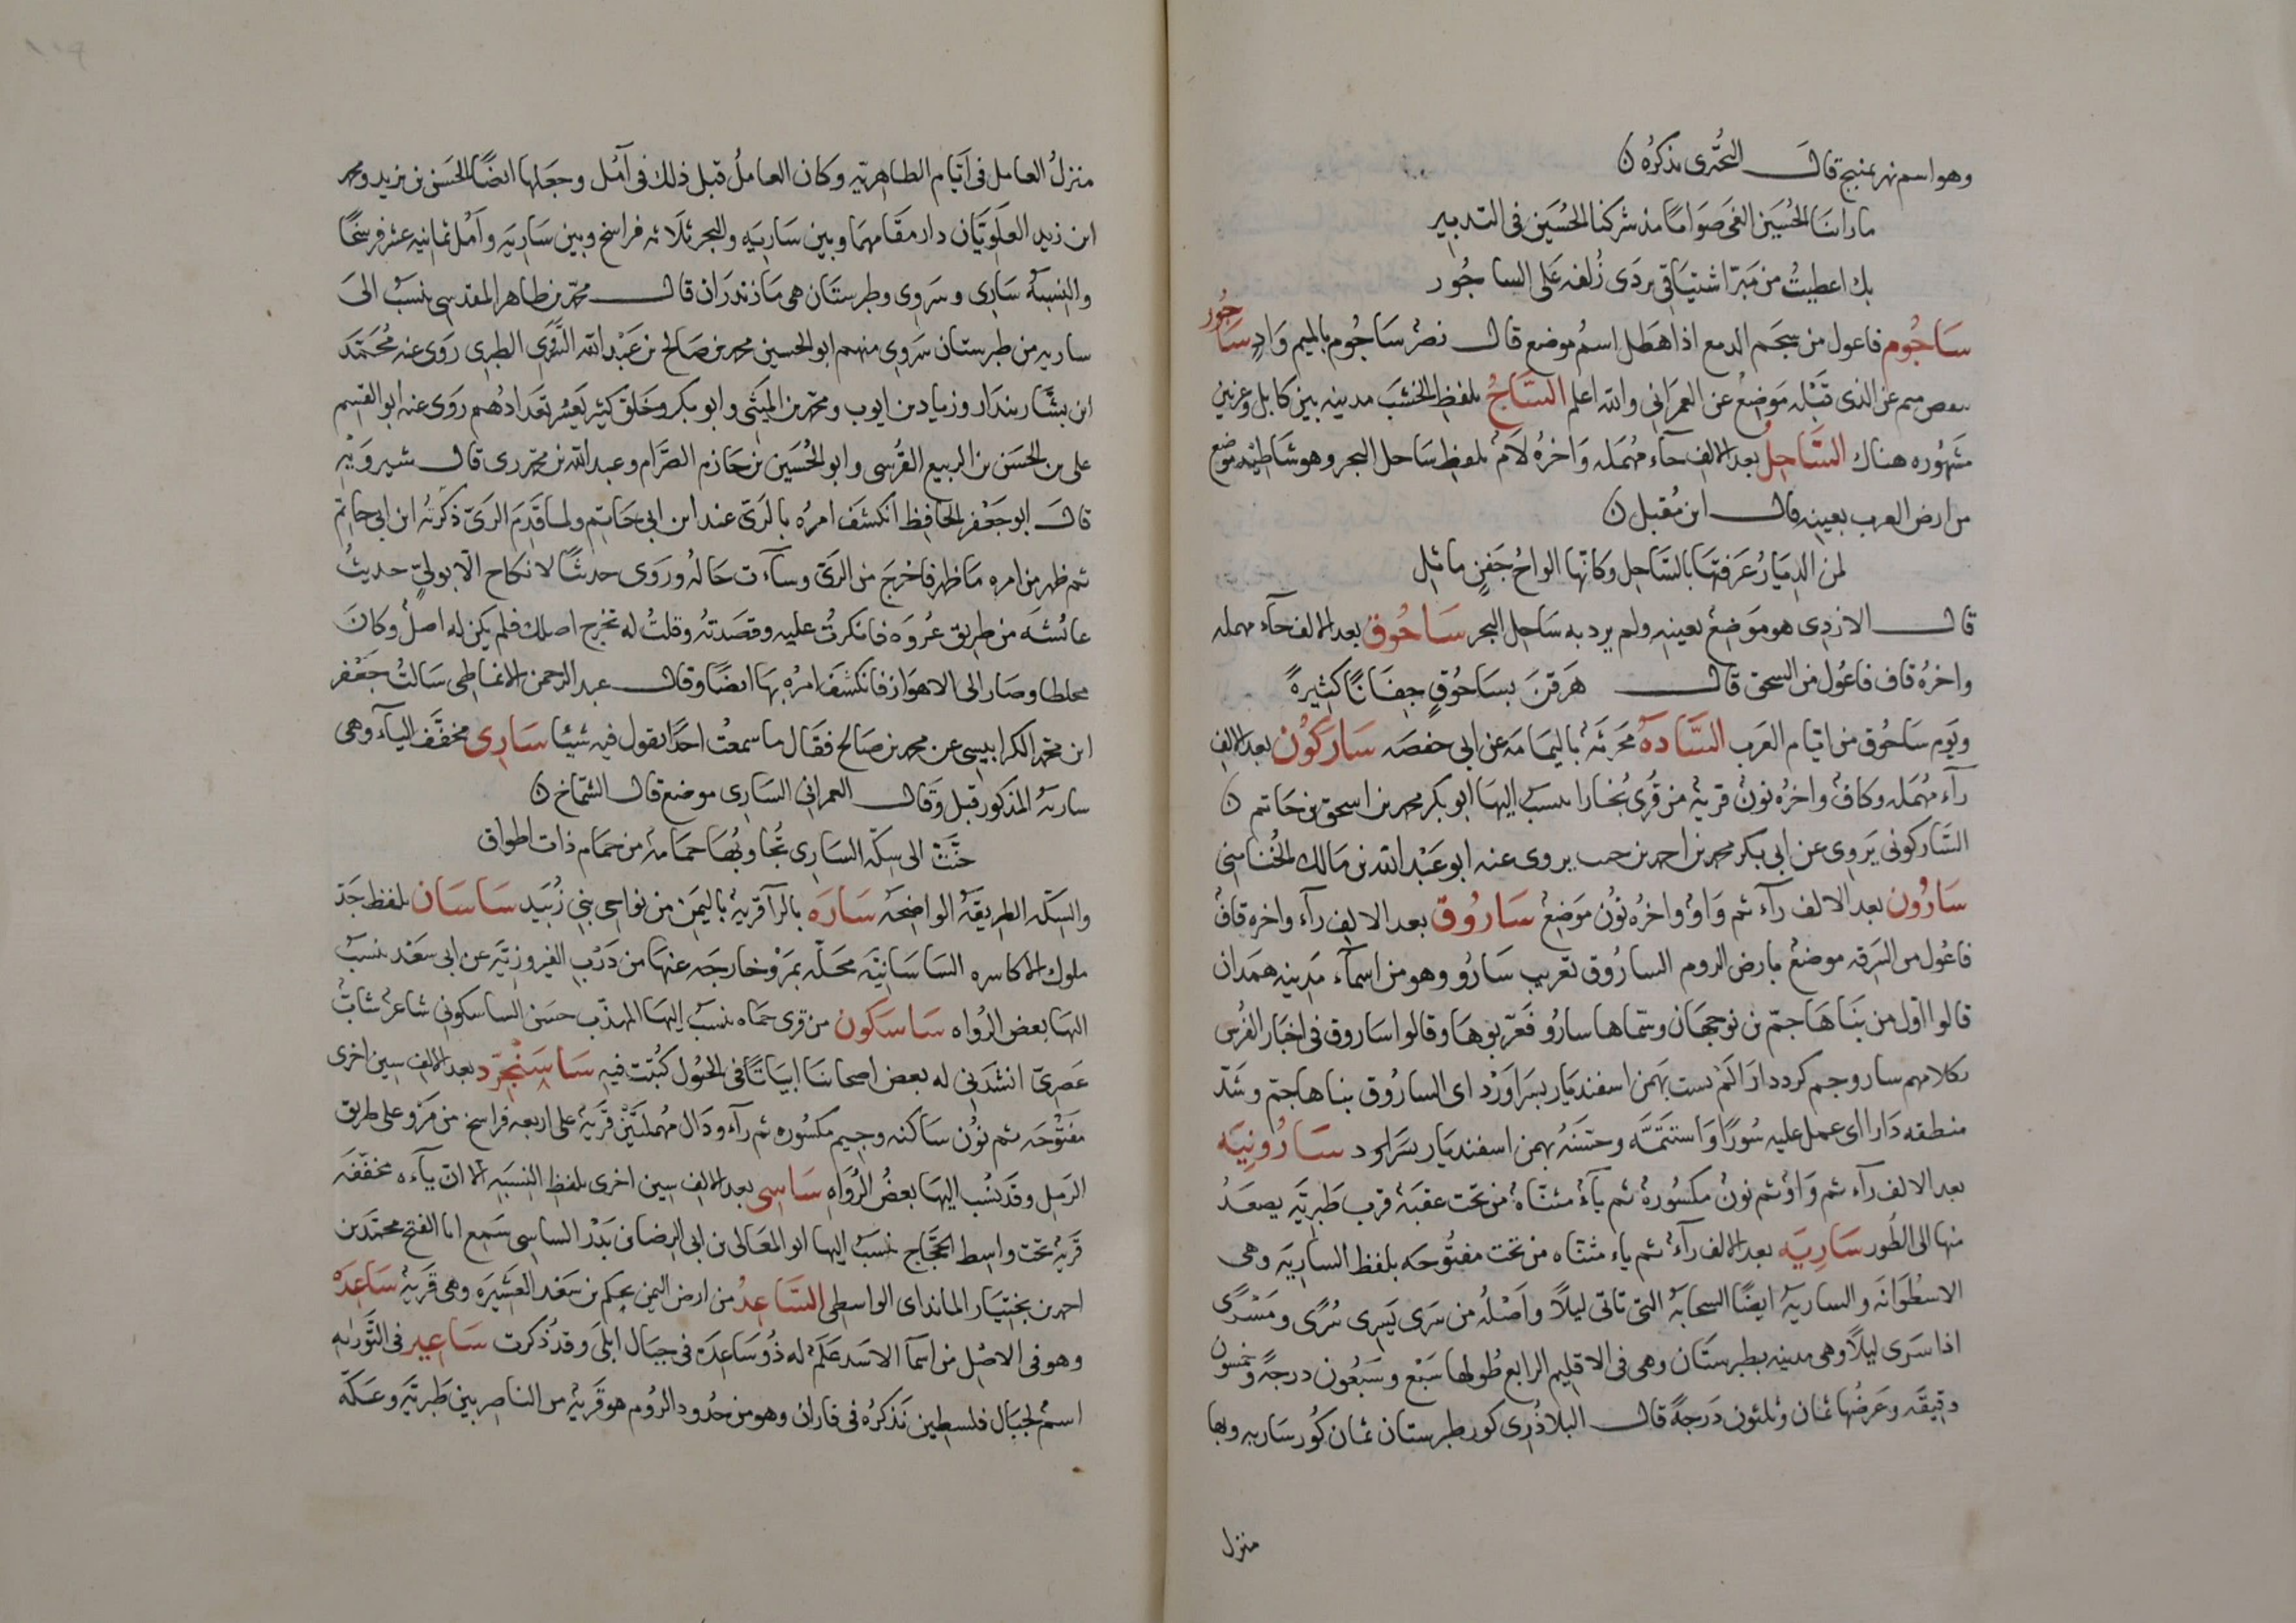 وهو اسم نهر بمنبج قال البحتري يذكره ن
ما راينا الحسين الغى صوابا مذ شركنا الحسين فى التدبير
بك اعطيت من مبر اشتياقى بردى زلفه على الساجور
ساجوم فاعول من سجم الدمع اذا هطل اسم موضع قال نصر ساجوم بالميم واد ساجور
بعوض ميم عن الذى قبله موضع عن العمرانى والله اعلم الساج بلفظ الخشب مدينه بين كابل وغزنين
مشهوره هناك الساحل بعد الالف حاء مهمله واخره لام بلفظ ساحل البحر وهو شاطئه موضع
من ارض العرب بعينه قال ابن مقبل ن
لمن الديار عرفتها بالساحل وكانها الواح جفن ماثل
قال الازدى هو موضع بعينه ولم يرد به ساحل البحر ساحوق بعد الالف حاء مهمله
واخره قاف فاعول من السحق قال هرقن بساحوق جفانا كثيرة
ويوم ساحوق من ايام العرب السادة محرثة باليمامه عن ابى حفصه ساركون بعد الالف
رآء مهمله وكاف واخره نون قرية من قرى بخارا ينسب اليها ابو بكر محمد بن اسحق بن حاتم ن
الساركونى يروى عن ابى بكر محمد بن احمد بن حبب يروى عنه ابو عبد الله بن مالك الخنامتى
سارون بعد الالف رآء ثم واو واخره نون موضع ساروق بعد الالف رآء واخره قاف
فاعول من السرقه موضع بارض الروم الساروق تعريب سارو وهو من اسمآء مدينه همدان
قالوا اول من بناها جم بن نوجهان وسماها سارو فعربوها وقالوا ساروق فى اخبار الفرس
بكلامهم سارو جم كرد دارا كمر بست بهمن اسفنديار بسر اورد اى الساروق بناها جم وشد
منطقه دارا اى عمل عليه سورا واستتمه وحسنه بهمن اسفنديار بسر اورد سارونيه
بعد الالف رآء ثم واو ثم نون مكسورة ثم يآء مثناة من تحت عقبة قرب طبرية يصعد
منها الى الطور ساريه بعد الالف رآء ثم ياء مثناه من تحت مفتوحه بلفظ الساريه وهى
الاسطوانه والسارية ايضا السحابة التى تاتى ليلا واصله من سرى يسرى سرى ومسرى
اذا سرى ليلا وهى مدينه بطبرستان وهى فى الاقليم الرابع طولها سبع وسبعون درجة وخمسون
دقيقه وعرضها ثمان وثلثون درجة قال البلاذرى كور طبرستان ثمان كور ساريه وبها
منزل
منزل العامل فى ايام الطاهريه وكان العامل قبل ذلك فى آمل وجعلها ايضا الحسن بن زيد ومحمد
ابن زيد العلويان دار مقامهما وبين ساريه والبحر ثلاثه فراسخ وبين ساريه وآمل ثمانيه عشر فرسخا
والنسبة سارى وسروى وطبرستان هى مازندران قال محمد بن طاهر المقدسى ينسب الى
ساريه من طبرستان سروى منهم ابو الحسين محمد بن صالح بن عبد الله السروى الطبرى روى عنه محمد
ابن بشار بندار وزياد بن ايوب ومحمد بن المثنى وابو بكر وخلق كثير يعسر تعدادهم روى عنه ابو القسم
على بن الحسن بن الربيع القرشى وابو الحسين بن حازم الصرام وعبد الله بن محمد رى قال شيرويه
قال ابو جعفر الحافظ انكشف امره بالرى عند ابن ابى حاتم ولما قدم الرى ذكرته ابن ابى حاتم
ثم ظهر من امره ما ظهر فاخرج من الرى وسآءت حاله وروى حديثا لا نكاح الا بولى حديث
عائشه من طريق عروه فانكرت عليه وقصدته وقلت له تخرج اصلك فلم يكن له اصل وكان
مخلطا وصار الى الاهواز فانكشف امره بها ايضا وقال عبد الرحمن الانماطى سالت جعفر
ابن محمد الكرابيسى عن محمد بن صالح فقال ما سمعت احدا يقول فيه شيئا سارى مخفف اليآء وهى
سارية المذكور قبل وقال العمرانى السارى موضع قال الشماخ ن
حنت الى سكة السارى تجاوبها حمامة من حمام ذات اطواق
والسكه الطريقة الواضحه ساره بالرآ قرية باليمن من نواحى بنى زبيد ساسان بلفظ جد
ملوك الاكاسره الساسانيه محله بمرو خارجه عنها من درب الفيروزيه عن ابى سعد ينسب
اليها بعض الرواه ساسكون من قرى حماه ينسب اليها المهذب حسن الساسكونى شاعر شاب
عصرى انشدنى له بعض اصحابنا ابياتا فى الخول كتبت فيه ساسنجرد بعد الالف سين اخرى
مفتوحه ثم نون ساكنه وجيم مكسوره ثم رآء ودال مهملتين قرية على اربعه فراسخ من مرو على طريق
الرمل وقد نسب اليها بعض الرواه ساسى بعد الالف سين اخرى بلفظ النسبه الا ان يآءه مخففه
قرية تحت واسط الحجاج ينسب اليها ابو المعالى بن ابى الرضا بن بدر الساسى سمع ابا الفتح محمد بن
احمد بن بختيار الماندائى الواسطى الساعد من ارض اليمن لحكم بن سعد العشيره وهى قرية ساعده
وهو فى الاصل من اسمآ الاسد علم له ذو ساعده فى جبال ابلى وقد ذكرت ساعير فى التوراه
اسم لجبال فلسطين نذكره فى فاران وهو من حدود الروم هو قرية من الناصره بين طبريه وعكه